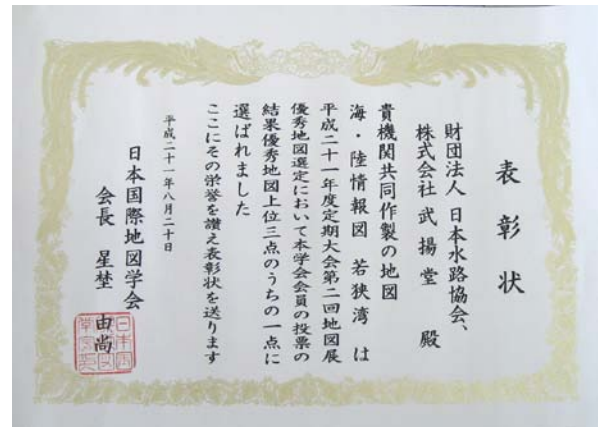 表彰状
財団法人 日本水路協会、
株式会社 武揚堂 殿
貴機関共同作製の地図
海・陸情報図 若狭湾 は
平成二十一年度定期大会第二回地図展
優秀地図選定において本学会会員の投票の
結果優秀地図上位三点のうちの一点に
選ばれました
ここにその栄誉を讃え表彰状を送ります
平成二十一年八月二十日
日本国際地図学会
会長 星埜 由尚